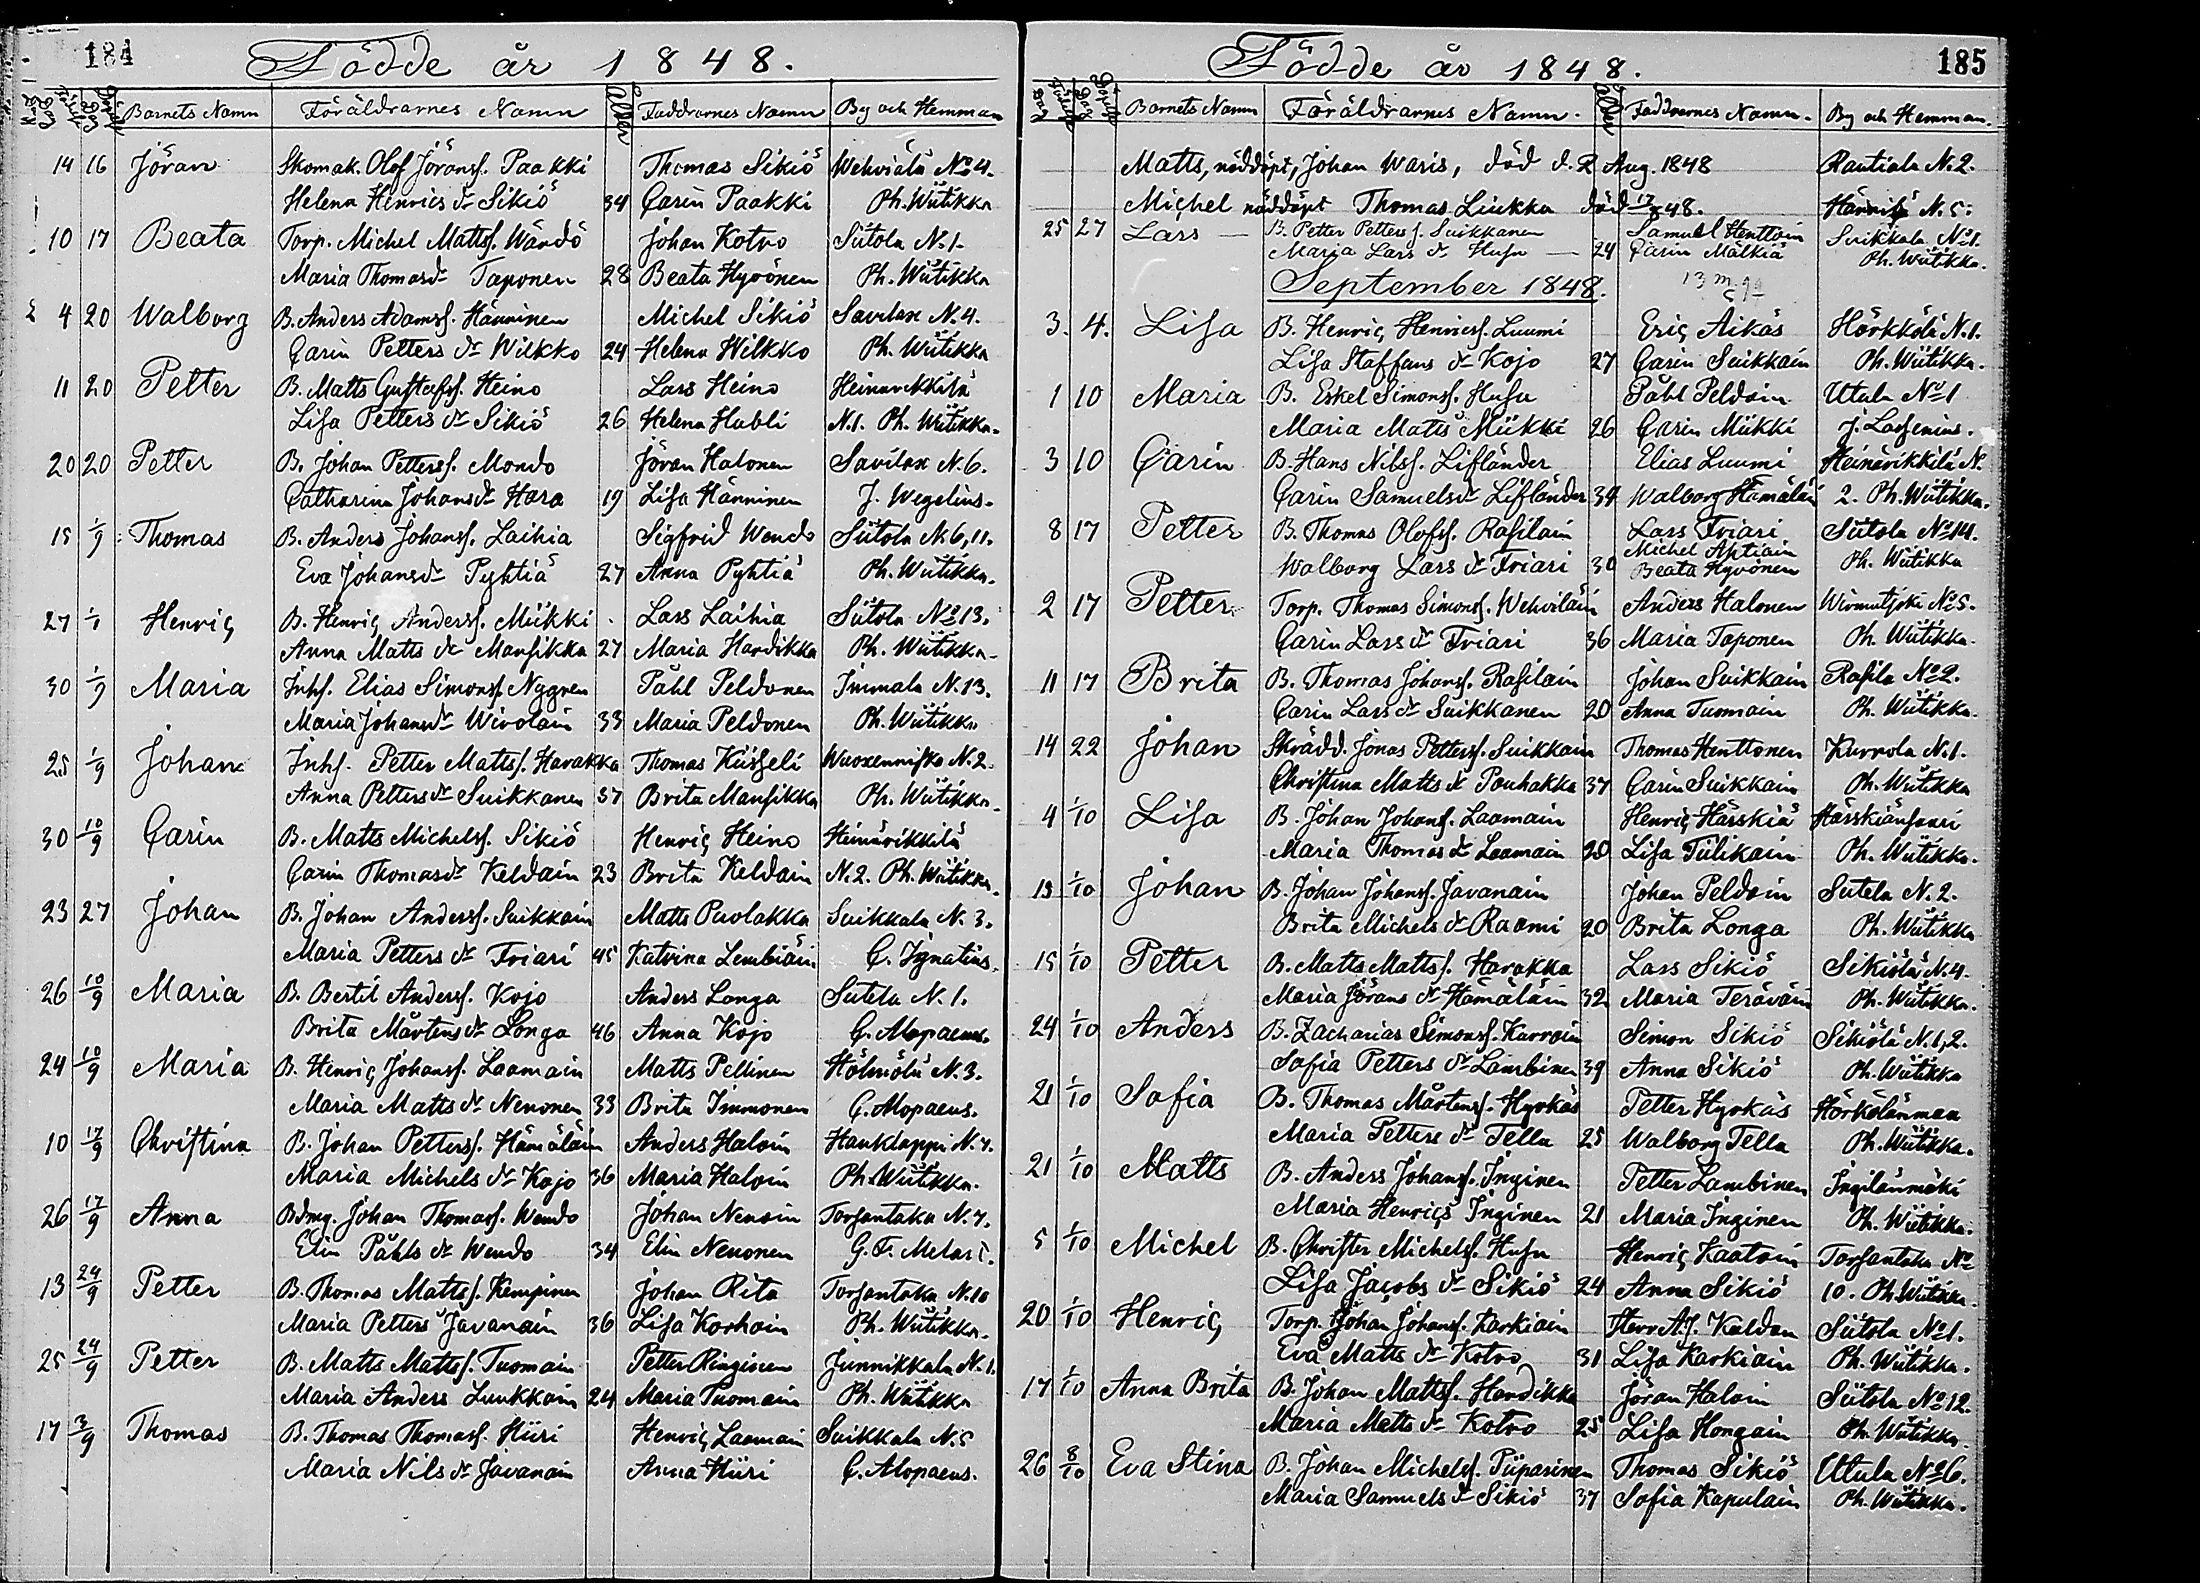 184
Födde år 1848.
Född Dag Döpelse Dag Barnets Namn Föräldrarnes Namn Ålder Faddrarnes Namn By och Hemman
14 16 Jöran Skomak. Olof Jöransf. Paakki Thomas Sikiö Wehviälä No 4.
Helena Henrics dr Sikiö 34 Carin Paakki Ph. Wiitikka
10 17 Beata Torp. Michel Mattsf. Wändö Johan Kotro Siitola N. 1.
Maria Thomas dr Taponen 28 Beata Hyvönen Ph. Wiitikka
4 20 Walborg B. Anders Adamsf. Hänninen Michel Sikiö Savilax N. 4.
Carin Petters dr Wilkko 24 Helena Wilkko Ph. Wiitikka
11 20 Petter B. Matts Gustafsf. Heino Lars Heino Heinävikkilä
Lisa Petters dr Sikiö 26 Helena Habli N. 1. Ph. Wiitikka.
20 20 Petter B. Johan Pettersf. Mondo Jöran Halonen Savilax N. 6.
Catharina Johans dr Hara 19 Lisa Hänninen J. Wegelius.
15 1/9 Thomas B. Anders Johansf. Laihia Sigfrid Wendo Siitola N. 6, 11.
Eva Johans dr Pyhtiä 27 Anna Pyhtiä Ph. Wiitikka.
27 1/9 Henric B. Henric Andersf. Miikki Lars Laihia Siitola No 13.
Anna Matts dr Mansikka 27 Maria Hardikka Ph. Wiitikka.
30 1/9 Maria Inhs. Elias Simonsf. Nygren Påhl Peldonen Immala N. 13.
Maria Johans dr Wirolain 33 Maria Peldonen Ph. Wiitikka
25 1/9 Johan Inhs. Petter Mattsf. Harakka Thomas Kiisseli Wuoxenniska N. 2.
Anna Petters dr Suikkanen 37 Brita Mansikka Ph. Wiitikka
30 10/9 Carin B. Matts Michelsf. Sikiö Henric Heino Heinävikkilä
Carin Thomas dr Keldain 23 Brita Keldain N. 2. Ph. Wiitikka.
23 27 Johan B. Johan Andersf. Suikkain Matts Puolakka Suikkala N. 3.
Maria Petters dr Friari 45 Katrina Lembiäin C. Ignatius.
26 10/9 Maria B. Bertil Andersf. Kojo Anders Longa Sutela N. 1.
Brita Mårtens dr Longa 46 Anna Kojo C. Alopaeus.
24 10/9 Maria B. Henric Johansf. Laamain Matts Pellinen Hölmölä N. 3.
Maria Matts dr Nenonen 33 Brita Immonen C. Alopaeus.
10 17/9 Christina B. Johan Pettersf. Hämäläin Anders Haloin Hauklappi N. 7.
Maria Michels dr Kojo 36 Maria Haloin Ph. Wiitikka.
26 17/9 Anna Bdmg. Johan Thomasf. Wendo Johan Nenoin Torsantaka N. 7.
Elin Påhls dr Wendo 34 Elin Nenonen G. F. Melart.
13 24/9 Petter B. Thomas Mattsf. Kempinen Johan Rita Torsantaka N. 10
Maria Petters Javanain 36 Lisa Korhoin Ph. Wiitikka.
25 24/9 Petter B. Matts Mattsf. Tuomain Petter Ringinen Junnikkala N. 1.
Maria Anders Luukkain 24 Maria Tuomain Ph. Wiitikka
17 3/9 Thomas B. Thomas Thomasf. Hiiri Henric Laamain Suikkala N. 5
Maria Nils dr Javanain Anna Hiiri C. Alopaeus.
185
Födde år 1848.
Dag Döpelse Dag Barnets Namn Föräldrarnes Namn. Ålder Faddrarnes Namn. By och Hemman.
Matts, nöddöpt, Johan Waris, död d. 2 Aug. 1848 Rautiala N. 2.
Michel nöddöpt Thomas Liukka död 48. N. 5.
25 27 Lars — B. Petter Pettersf. Suikkanen Samuel Henttoin Suikkala No 1.
Maria Lars dr Husu — 24 Carin Mälkiä Ph. Wiitikka.
September 1848.
3. 4. Lisa B. Henric Henricsf. Luumi Eric Aikäs Hörkkölä N. 1.
Lisa Staffans dr Kojo 27 Carin Suikkain Ph. Wiitikka.
1 10 Maria B. Eskel Simonsf. Husu Påhl Peldoin Utula No 1
Maria Matts Miikki 26 Carin Miikki J. Lassenius.
3 10 Carin B. Hans Nilsf. Lifländer Elias Luumi Heinävikkilä N.
Carin Samuels dr Lifländer 34 Walborg Hämäläin 2. Ph. Wiitikka.
8 17 Petter B. Thomas Olofsf. Rasilain Lars Friari Siitola No 14.
Michel Ahtiain
Walborg Lars dr Friari 30 Beata Hyvönen Ph. Wiitikka
2 17 Petter Torp. Thomas Simonsf. Wehviläin Anders Halonen Wirmutjoki No 5.
Carin Lars dr Friari 36 Maria Taponen Ph. Wiitikka.
11 17 Brita B. Thomas Johansf. Rasilain Johan Suikkain Rasila No 2.
Carin Lars dr Suikkanen 20 Anna Tuomain Ph. Wiitikka.
14 22 Johan Skrädd. Jonas Pettersf. Suikkain Thomas Henttonen Kurrola N. 1.
Christina Matts dr Pouhakka 37 Carin Suikkain Ph. Wiitikka
4 1/10 Lisa B. Johan Johansf. Laamain Henric Härskiä Härskiänsaari
Maria Thomas dr Laamain 20 Lisa Tiilikain Ph. Wiitikka.
13 1/10 Johan B. Johan Johansf. Javanain Johan Peldoin Sutela N. 2.
Brita Michels dr Raami 20 Brita Longa Ph. Wiitikka
15 1/10 Petter B. Matts Mattsf. Harakka Lars Sikiö Sikiölä N. 4.
Maria Jörans dr Hämäläin 32 Maria Teräväin Ph. Wiitikka.
24 1/10 Anders B. Zacharias Simonsf. Kurroin Simon Sikiö Sikiölä N. 1, 2.
Sofia Petters dr Lambinen 39 Anna Sikiö Ph. Wiitikka
21 1/10 Sofia B. Thomas Mårtensf. Hyrkäs Petter Hyrkäs Hörkölänmaa
Maria Petters dr Tella 25 Walborg Tella Ph. Wiitikka.
21 1/10 Matts B. Anders Johansf. Inginen Petter Lambinen Ingilänmäki
Maria Henrics Inginen 21 Maria Inginen Ph. Wiitikka.
5 1/10 Michel B. Christer Michelsf. Husu Henric Kaatoin Torsantaka No
Lisa Jacobs dr Sikiö 24 Anna Sikiö 10. Ph. Wiitikka.
20 1/10 Henric Torp. Johan Johansf. Karkiain Herr Kaldan Siitola No 1.
Eva Matts dr Kotro 31 Lisa Karkiain Ph. Wiitikka.
17 1/10 Anna Brita B. Johan Mattsf. Hardikka Jöran Haloin Siitola No 12.
Maria Matts dr Kotro 25 Lisa Hongain Ph. Wiitikka.
26 8/10 Eva Stina B. Johan Michelsf. Piiparinen Thomas Sikiö Utula No 6.
Maria Samuels dr Sikiö 37 Sofia Kapulain Ph. Wiitikka.